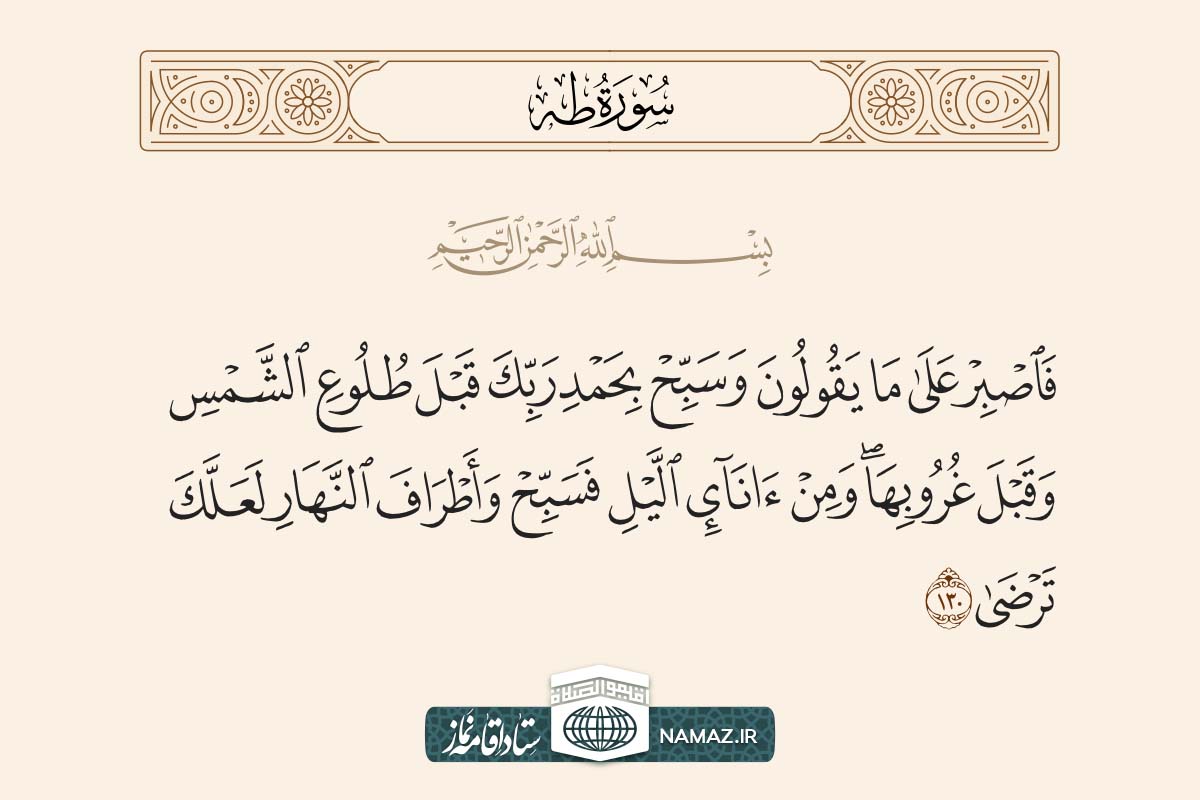 سُورَةُ طه
بِسْمِ ٱللَّهِ ٱلرَّحْمَٰنِ ٱلرَّحِيمِ
فَٱصْبِرْ عَلَىٰ مَا يَقُولُونَ وَسَبِّحْ بِحَمْدِ رَبِّكَ قَبْلَ طُلُوعِ ٱلشَّمْسِ
وَقَبْلَ غُرُوبِهَاۖ وَمِنْ ءَانَآيِٕ ٱلَّيْلِ فَسَبِّحْ وَأَطْرَافَ ٱلنَّهَارِ لَعَلَّكَ
تَرْضَىٰ ١٣٠
اقیموا الصلاة
ستاد اقامه نماز NAMAZ.IR